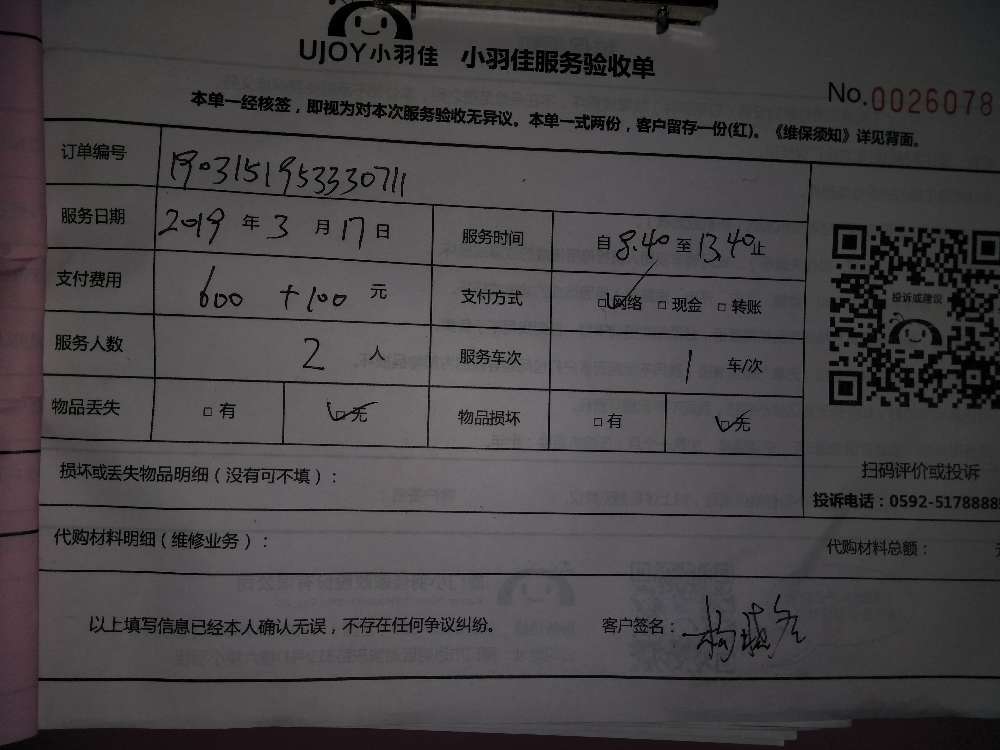 UJOY小羽佳 小羽佳服务验收单
No.0026078
本单一经核签，即视为对本次服务验收无异议。本单一式两份，客户留存一份(红)。《维保须知》详见背面。
订单编号 1903151953330711
服务日期 2019 年 3 月 17 日 服务时间 自 8.40 至 13.40 止
支付费用 600 +100 元 支付方式 □网络 □ 现金 □ 转账
投诉或建议
服务人数 2 人 服务车次 1 车/次
物品丢失 □ 有 □ 无 物品损坏 □ 有 □ 无
损坏或丢失物品明细（没有可不填）：
扫码评价或投诉
投诉电话：0592-5178888
代购材料明细（维修业务）：
代购材料总额：
以上填写信息已经本人确认无误，不存在任何争议纠纷。 客户签名：